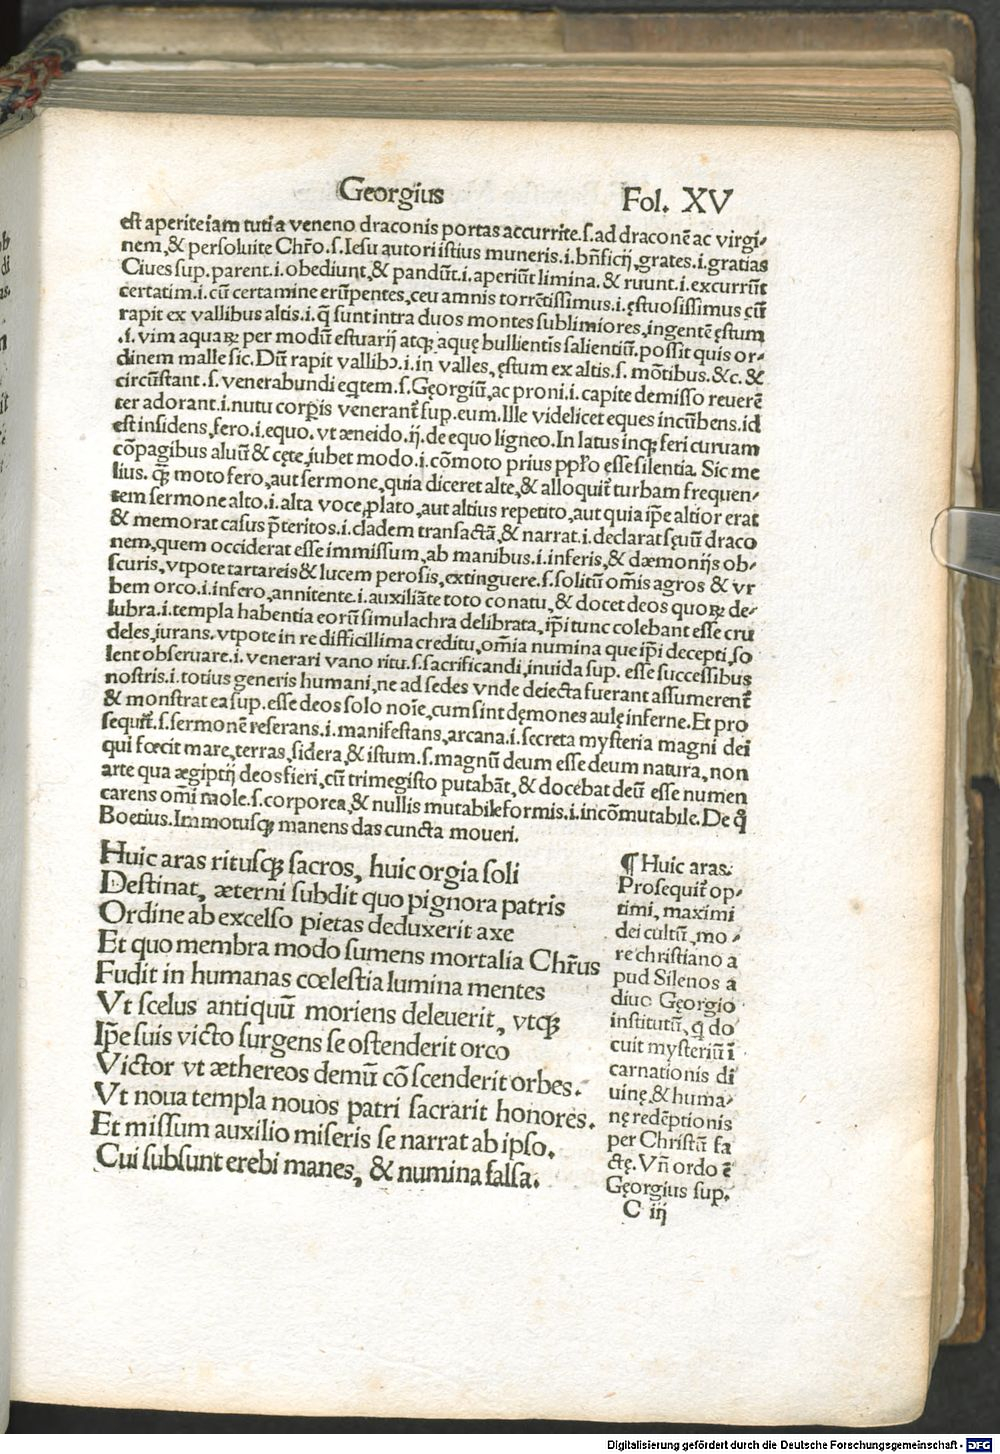 Georgius
Fol. XV
est aperite iam tuti a veneno draconis portas accurrite.s.ad draconē ac virgi-
nem,& persoluite Chr̄o.s.Iesu autori istius muneris.i.bn̄ficij,grates.i.gratias
Ciues sup.parent.i.obediunt,& pandūt.i.aperiūt limina.& ruunt.i.excurrūt
certatim.i.cū certamine erūpentes,ceu amnis torrētissimus.i.ęstuosissimus cū
rapit ex vallibus altis.i.q̄ sunt intra duos montes sublimiores,ingentē ęstum
.i.vim aquaꝝ per modū estuarij atqꝫ aquę bullientis salientiū.possit quis or-
dinem malle sic.Dū rapit vallibꝰ.i.in valles,ęstum ex altis.s.mōtibus.&c.&
circūstant.s.venerabundi eq̄tem.s.Gęorgiū,ac proni.i.capite demisso reuerē
ter adorant.i.nutu corp̄is venerant᷑ sup.eum.Ille videlicet eques incūbens.id
est insidens,fero.i.equo.vt æneido.ij.de equo ligneo.In latus inqꝫ feri curuam
cōpagibus aluū & cęte,iubet modo.i.cōmoto prius pp̄lo ęsse silentia. Sic me
lius.qꝫ moto fero,aut sermone,quia diceret alte,& alloquit᷑ turbam frequen-
tem sermone alto.i.alta voce,plato,aut altius repetito,aut quia ip̄e altior erat
& memorat casus p̄teritos.i.cladem transactā,& narrat.i.declarat sęuū draco
nem,quem occiderat esse immissum,ab manibus.i.inferis,& dæmonijs ob-
scuris,vtpote tartareis & lucem perosis,extinguere.s.solitū om̄is agros & vr
bem orco.i.infero,annitente.i.auxiliāte toto conatu,& docet deos quoꝝ de-
lubra.i.templa habentia eorū simulachra delibrata,ip̄i tunc colebant esse cru
deles,iurans.vtpote in re difficillima creditu,om̄ia numina que ip̄i decepti,so
lent obseruare.i.venerari vano ritu.s.sacrificandi,inuida sup.esse successibus
nostris.i.totius generis humani,ne ad sedes vnde deiecta fuerant assumerent᷑
& monstrat ea sup.esse deos solo noīe,cum sint dęmones aulę inferne.Et pro
sequit᷑.s.sermonē referans.i.manifestans,arcana.i.secreta mysteria magni dei
qui fœcit mare,terras,sidera,& istum.s.magnū deum esse deum natura,non
arte qua ægiptij deos fieri,cū trimegisto putabāt,& docebat deū esse numen
carens om̄i mole.s.corporea,& nullis mutabile formis.i.incōmutabile.De q̄
Boetius.Immotusqꝫ manens das cuncta moueri.
Huic aras ritusqꝫ sacros, huic orgia soli
Destinat, æterni subdit quo pignora patris
Ordine ab excelso pietas deduxerit axe
Et quo membra modo sumens mortalia Chr̄us
Fudit in humanas cœlestia lumina mentes
Vt scelus antiquū moriens deleuerit, vtqꝫ
Ip̄e suis victo surgens se ostenderit orco
Victor vt æthereos demū cōscenderit orbes.
Vt noua templa nouos patri sacrarit honores.
Et missum auxilio miseris se narrat ab ipso.
Cui subsunt erebi manes, & numina falsa.
¶ Huic aras.
Prosequit᷑ op-
timi, maximi
dei cultū,mo-
re christiano a
pud Silenos a
diuo Gęorgio
institutū,q̄ do
cuit mysteriū ī
carnationis di
uinę,& huma-
nę redēptionis
per Christū fa
ctę. Vn̄ ordo ē
Gęorgius sup.
C iij
Digitalisierung gefördert durch die Deutsche Forschungsgemeinschaft - DFG